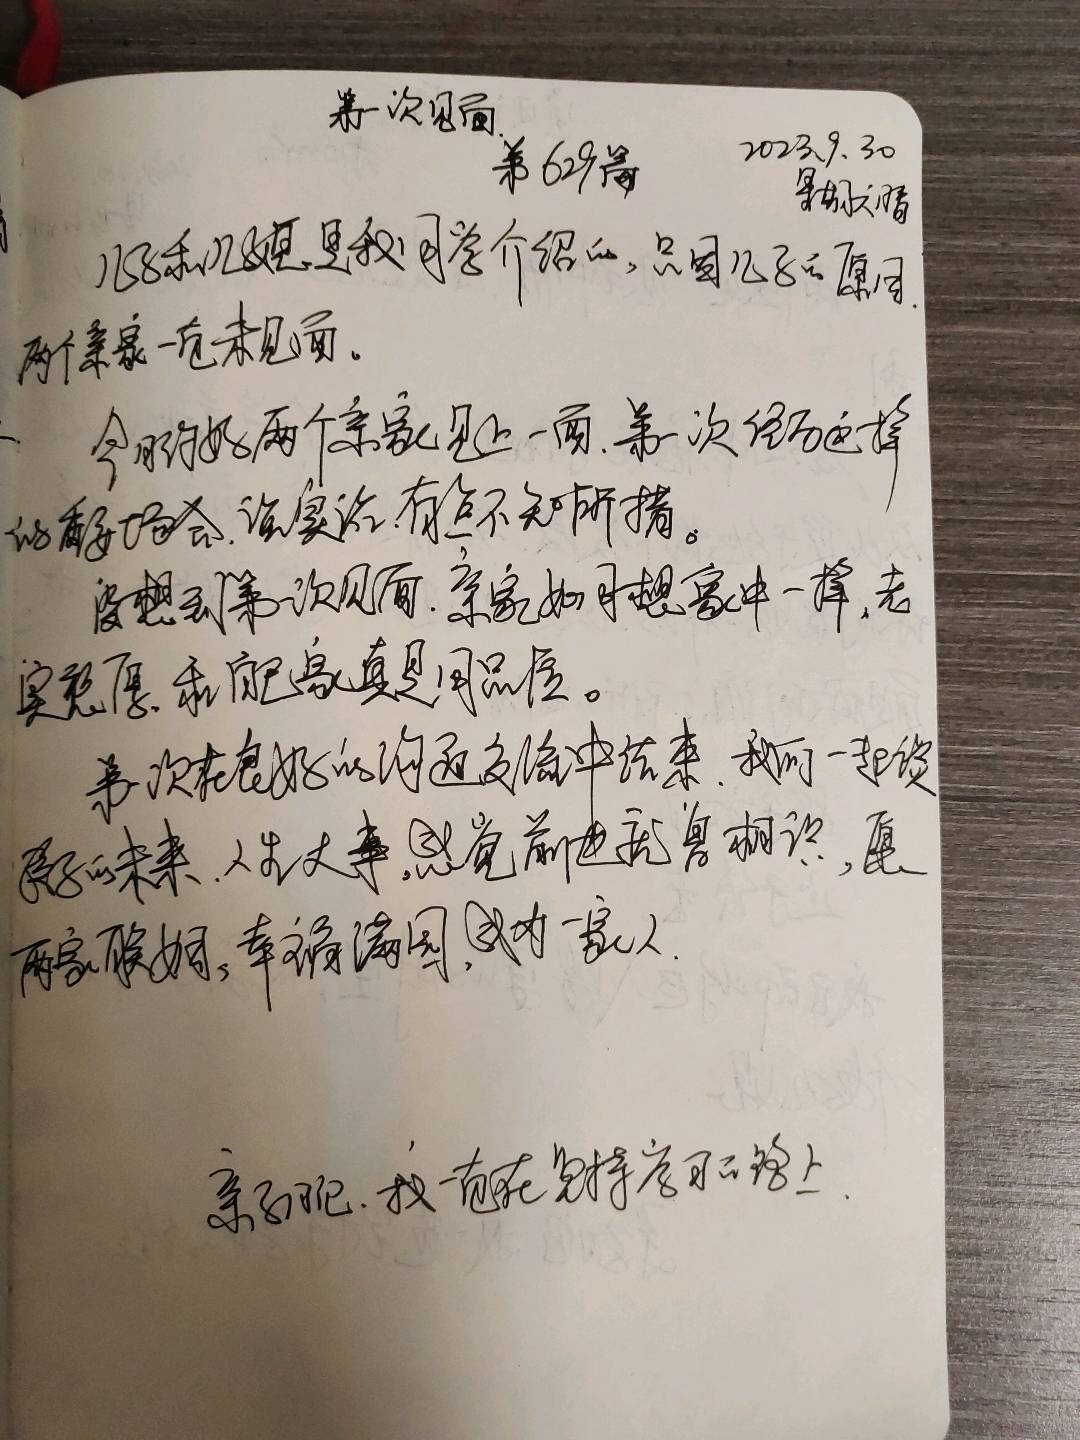 第一次见面.
第629篇
2023.9.30
星期六晴
儿子和儿媳是我同学介绍的,只因儿子的原因.
两个亲家一直未见面。
今日约好两个亲家见上一面.第一次经历这样
的重要场合.说实话.有点不知所措。
没想到第一次见面.亲家如同想象中一样,老
实憨厚.和自己家真是同品位。
第一次在良好的沟通交流中结束.我们一起谈
孩子的未来.人生大事,感觉前世就曾相识,愿
两家联姻,幸福满园,成为一家人.
亲子日记.我一直在坚持学习的路上.